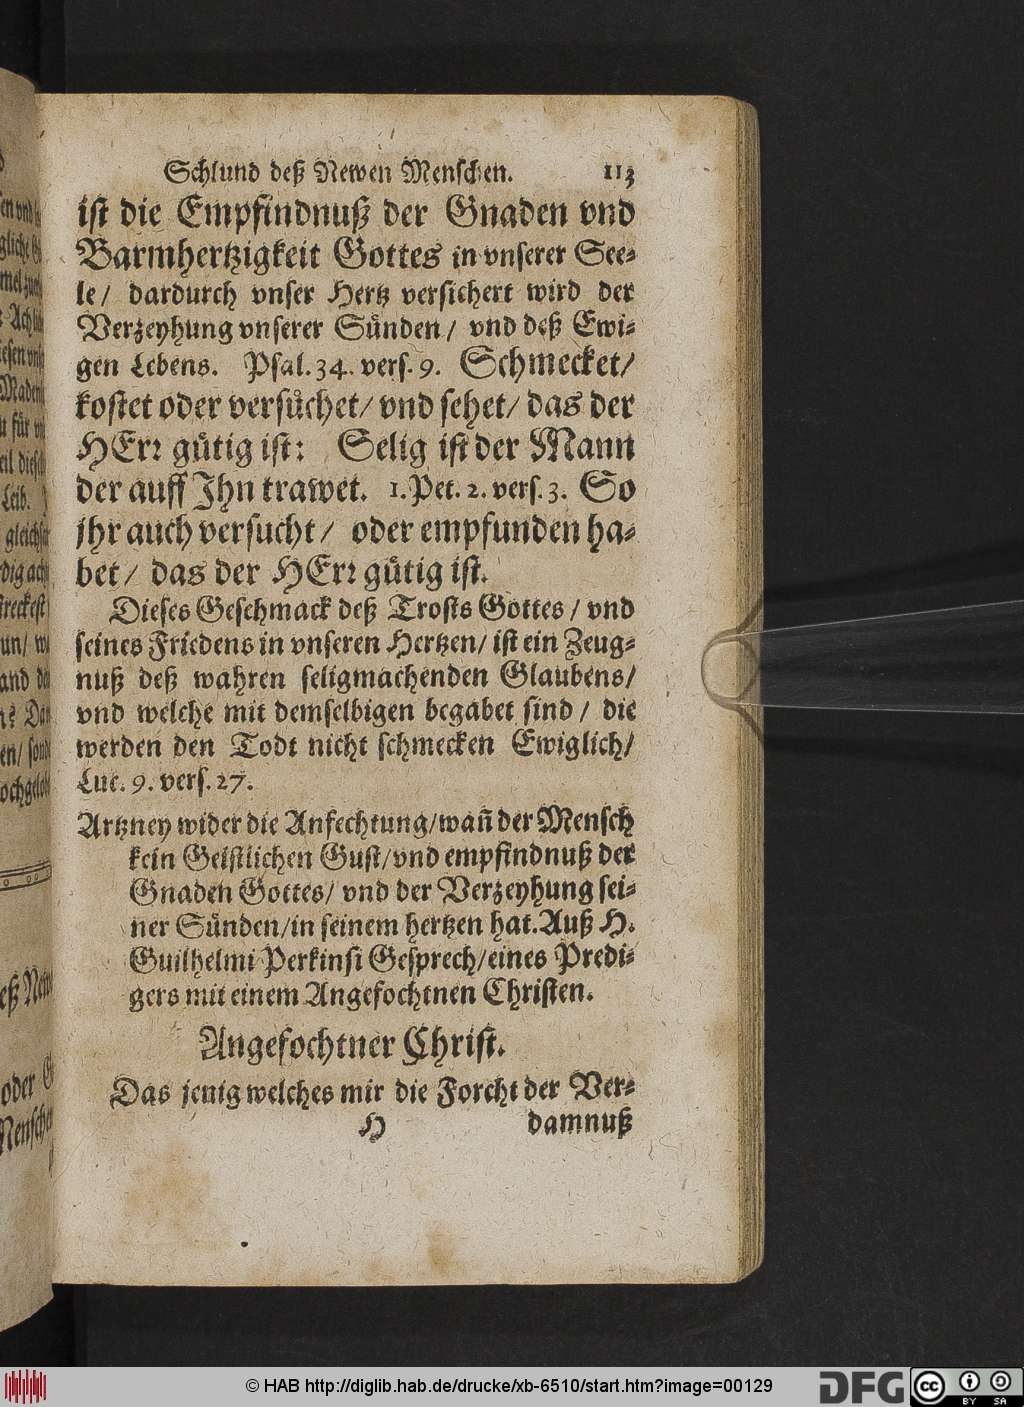 Schlund deß Newen Menschen. 113
ist die Empfindnuß der Gnaden vnd
Barmhertzigkeit Gottes in vnserer See-
le / dardurch vnser Hertz versichert wird der
Verzeyhung vnserer Sünden / vnd deß Ewi-
gen Lebens. Psal. 34. vers. 9. Schmecket /
kostet oder versůchet / vnd sehet / das der
HErꝛ gůtig ist: Selig ist der Mann
der auff Jhn trawet. 1. Pet. 2. vers. 3. So
jhr auch versucht / oder empfunden ha-
bet / das der HErꝛ gůtig ist.
Dieses Geschmack deß Trosts Gottes / vnd
seines Friedens in vnseren Hertzen / ist ein Zeug-
nuß deß wahren seligmachenden Glaubens /
vnd welche mit demselbigen begabet sind / die
werden den Todt nicht schmecken Ewiglich /
Luc. 9. vers. 27.
Artzney wider die Anfechtung / wañ der Mensch
kein Geistlichen Gust / vnd empfindnuß der
Gnaden Gottes / vnd der Verzeyhung sei-
ner Sünden / in seinem hertzen hat. Auß H.
Guilhelmi Perkinsi Gesprech / eines Predi-
gers mit einem Angefochtnen Christen.
Angefochtner Christ.
Das jenig welches mir die Forcht der Ver-
H damnuß
© HAB http://diglib.hab.de/drucke/xb-6510/start.htm?image=00129
DFG
cc BY SA